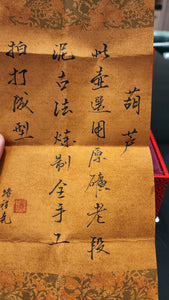 葫芦
此壶选用原礦老段
泥古法炼制全手工
拍打成型